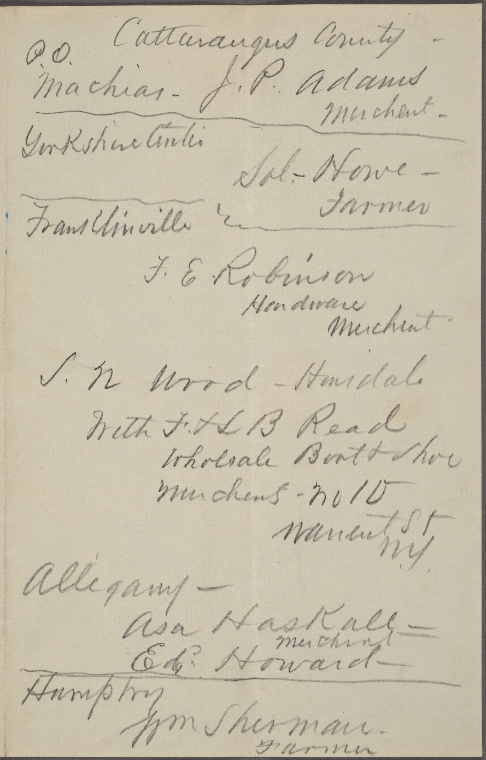 Cattaraugus County -
P.O.
Machias - J. P. Adams
Merchant -
Yorkshire Center
Sol - Howe -
Farmer
Franklinville
F. E Robinson
Hardware
Merchant
S. N Wood - Hinsdale
With F. & L B Read
Wholesale Boot & Shoe
Merchens - No 10
Warrent St
N.Y.
Allegany -
Asa Haskall -
Merchant
Ed. Howard -
Humphry
Wm Sherman -
Farmer